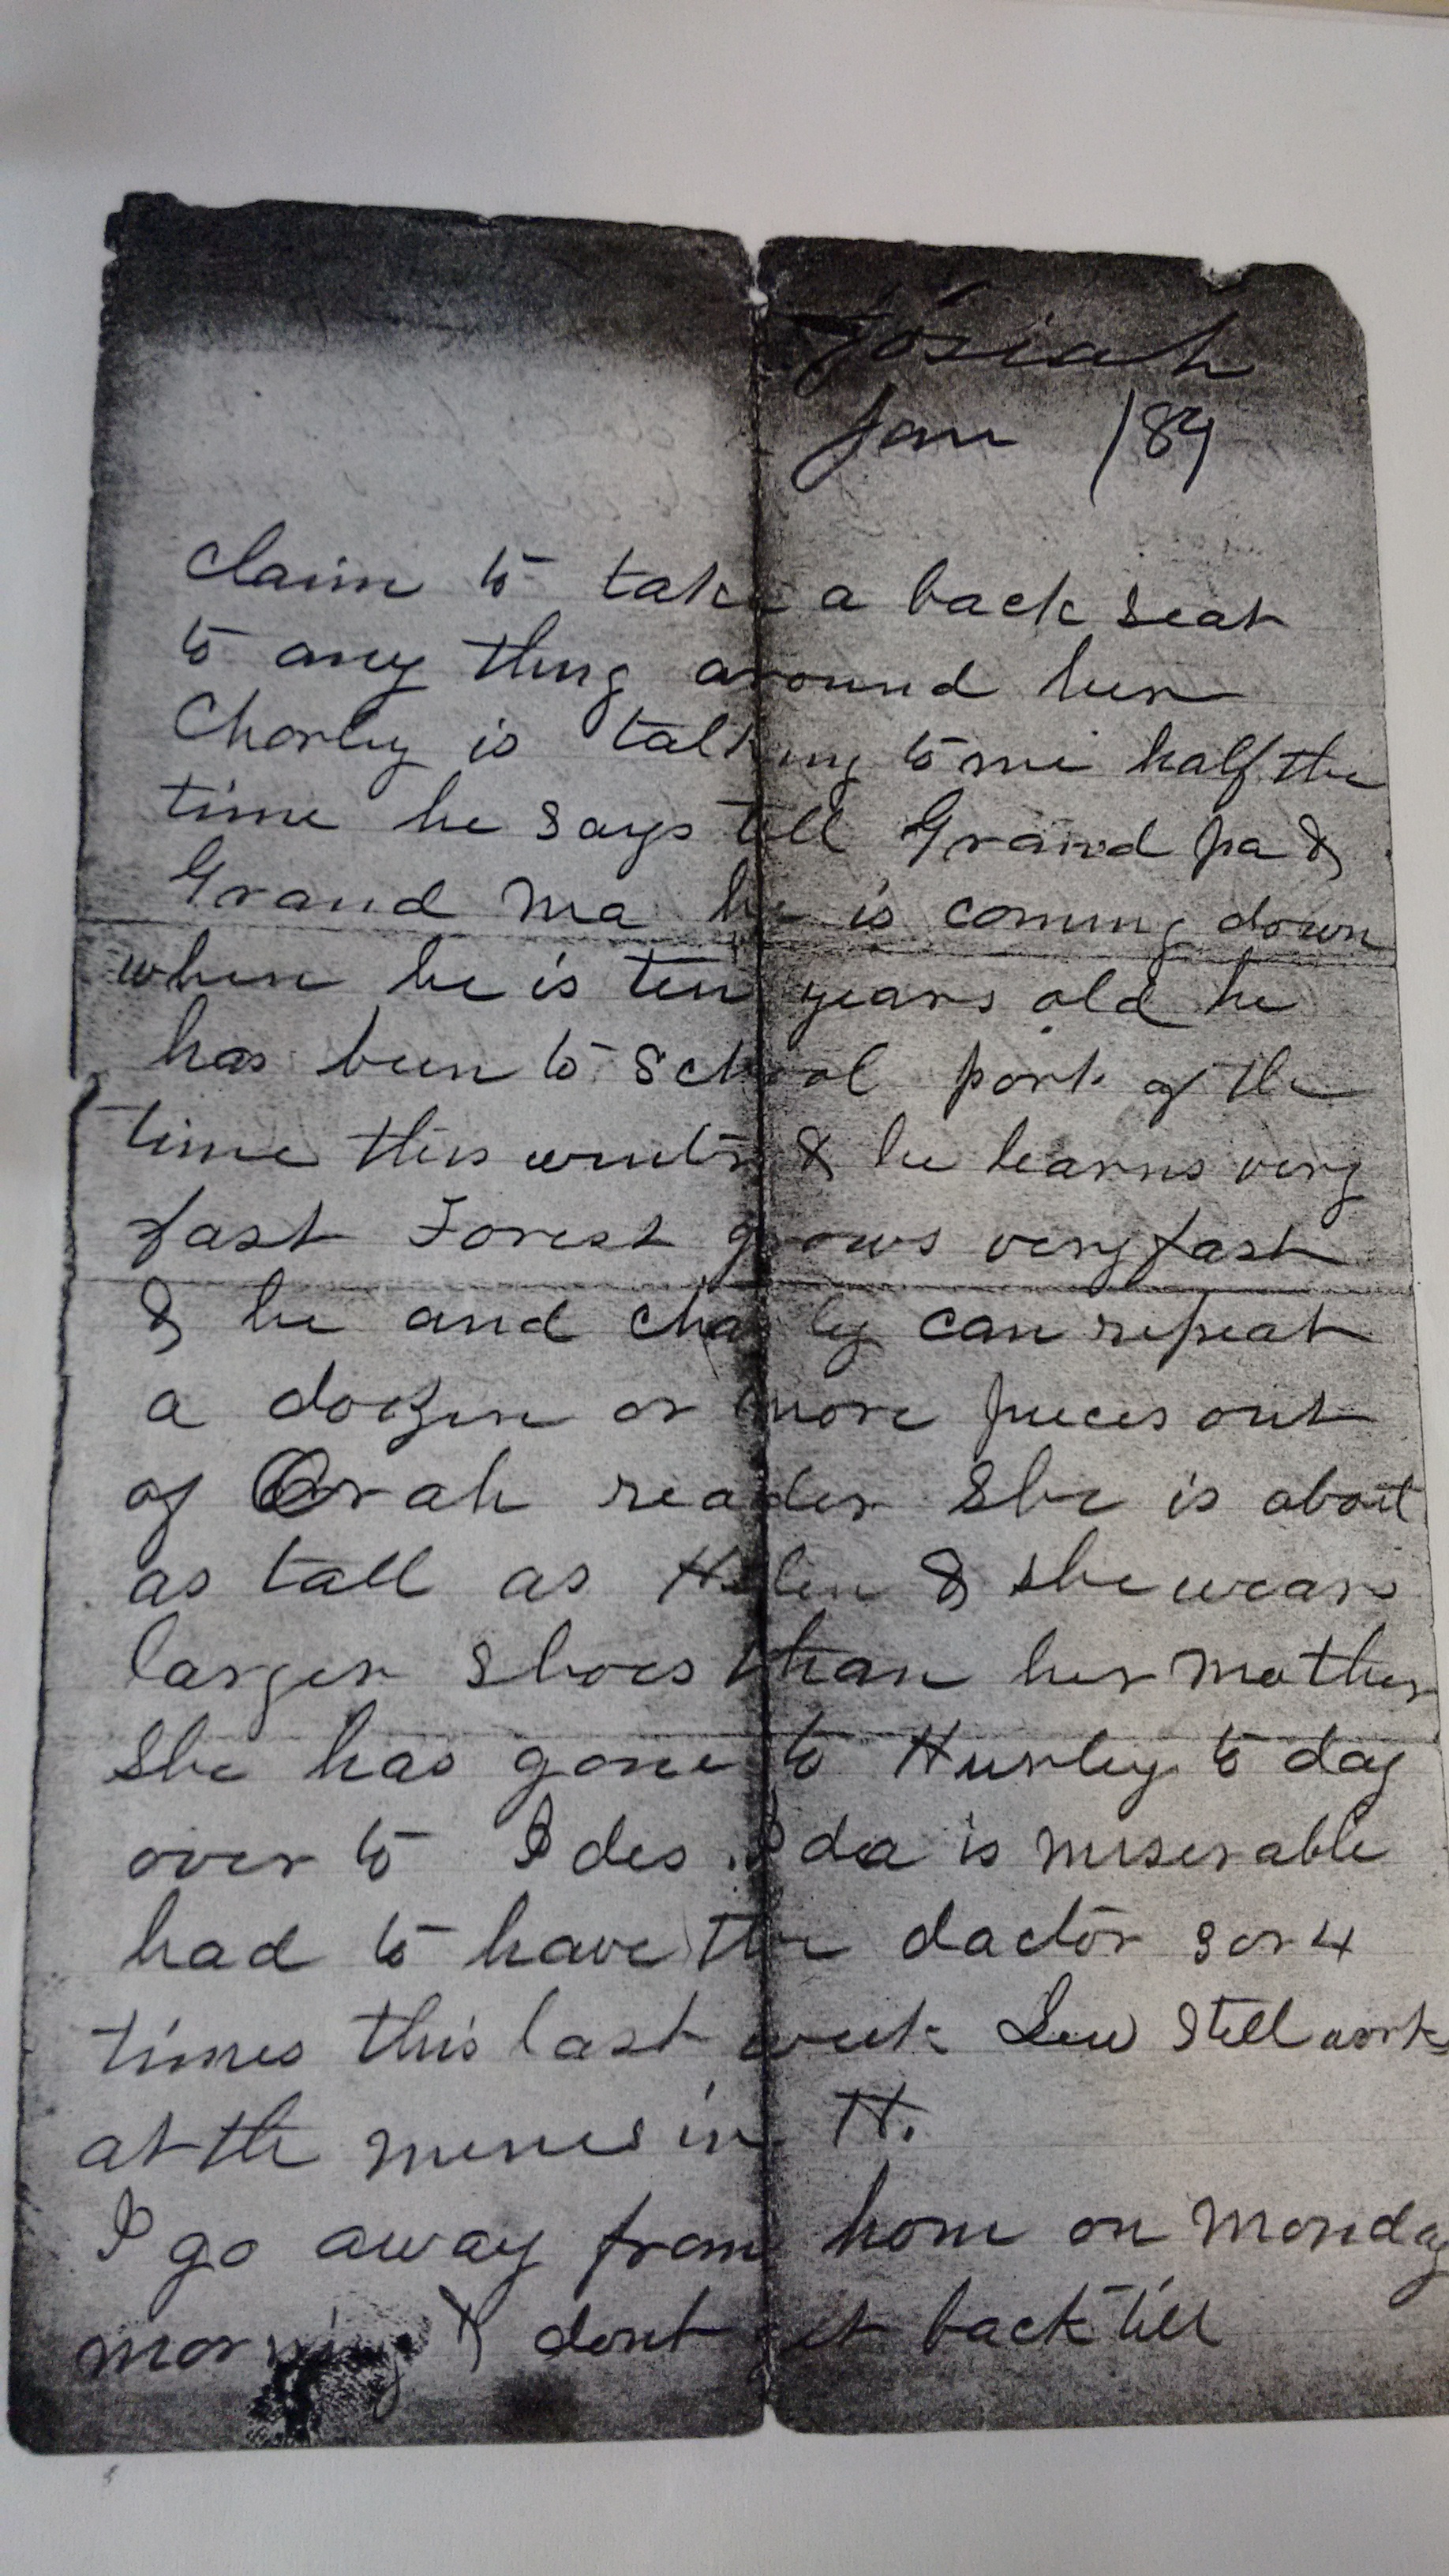 Josiah
Jan /89
claim to take a back seat
to any thing around here
Charley is talking to me half the
time he says tell Grand pa &
Grand Ma he is coming down
when he is ten years old he
has been to School part of the
time this winter & he learns very
fast Forest grows very fast
& he and charley can repeat
a dozen or more pieces out
of Orah reader She is about
as tall as Helen & she wears
larger shoes than her mother
She has gone to Hurley to day
over to Ides. Ida is miserable
had to have the doctor 3 or 4
times this last week Lew Still works
at the mines in H.
I go away from home on Monday
morning & dont get back till